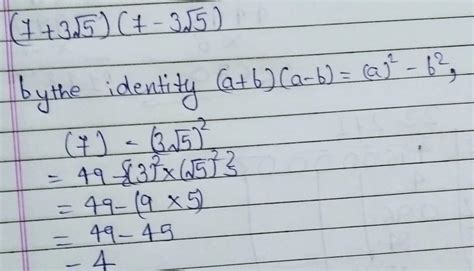 (7+3√5)(7-3√5)
by the identity (a+b)(a-b) = (a)² - b²,
(7) - (3√5)²
= 49 - {(3)² × (√5)²}
= 49 - (9 × 5)
= 49 - 45
- 4